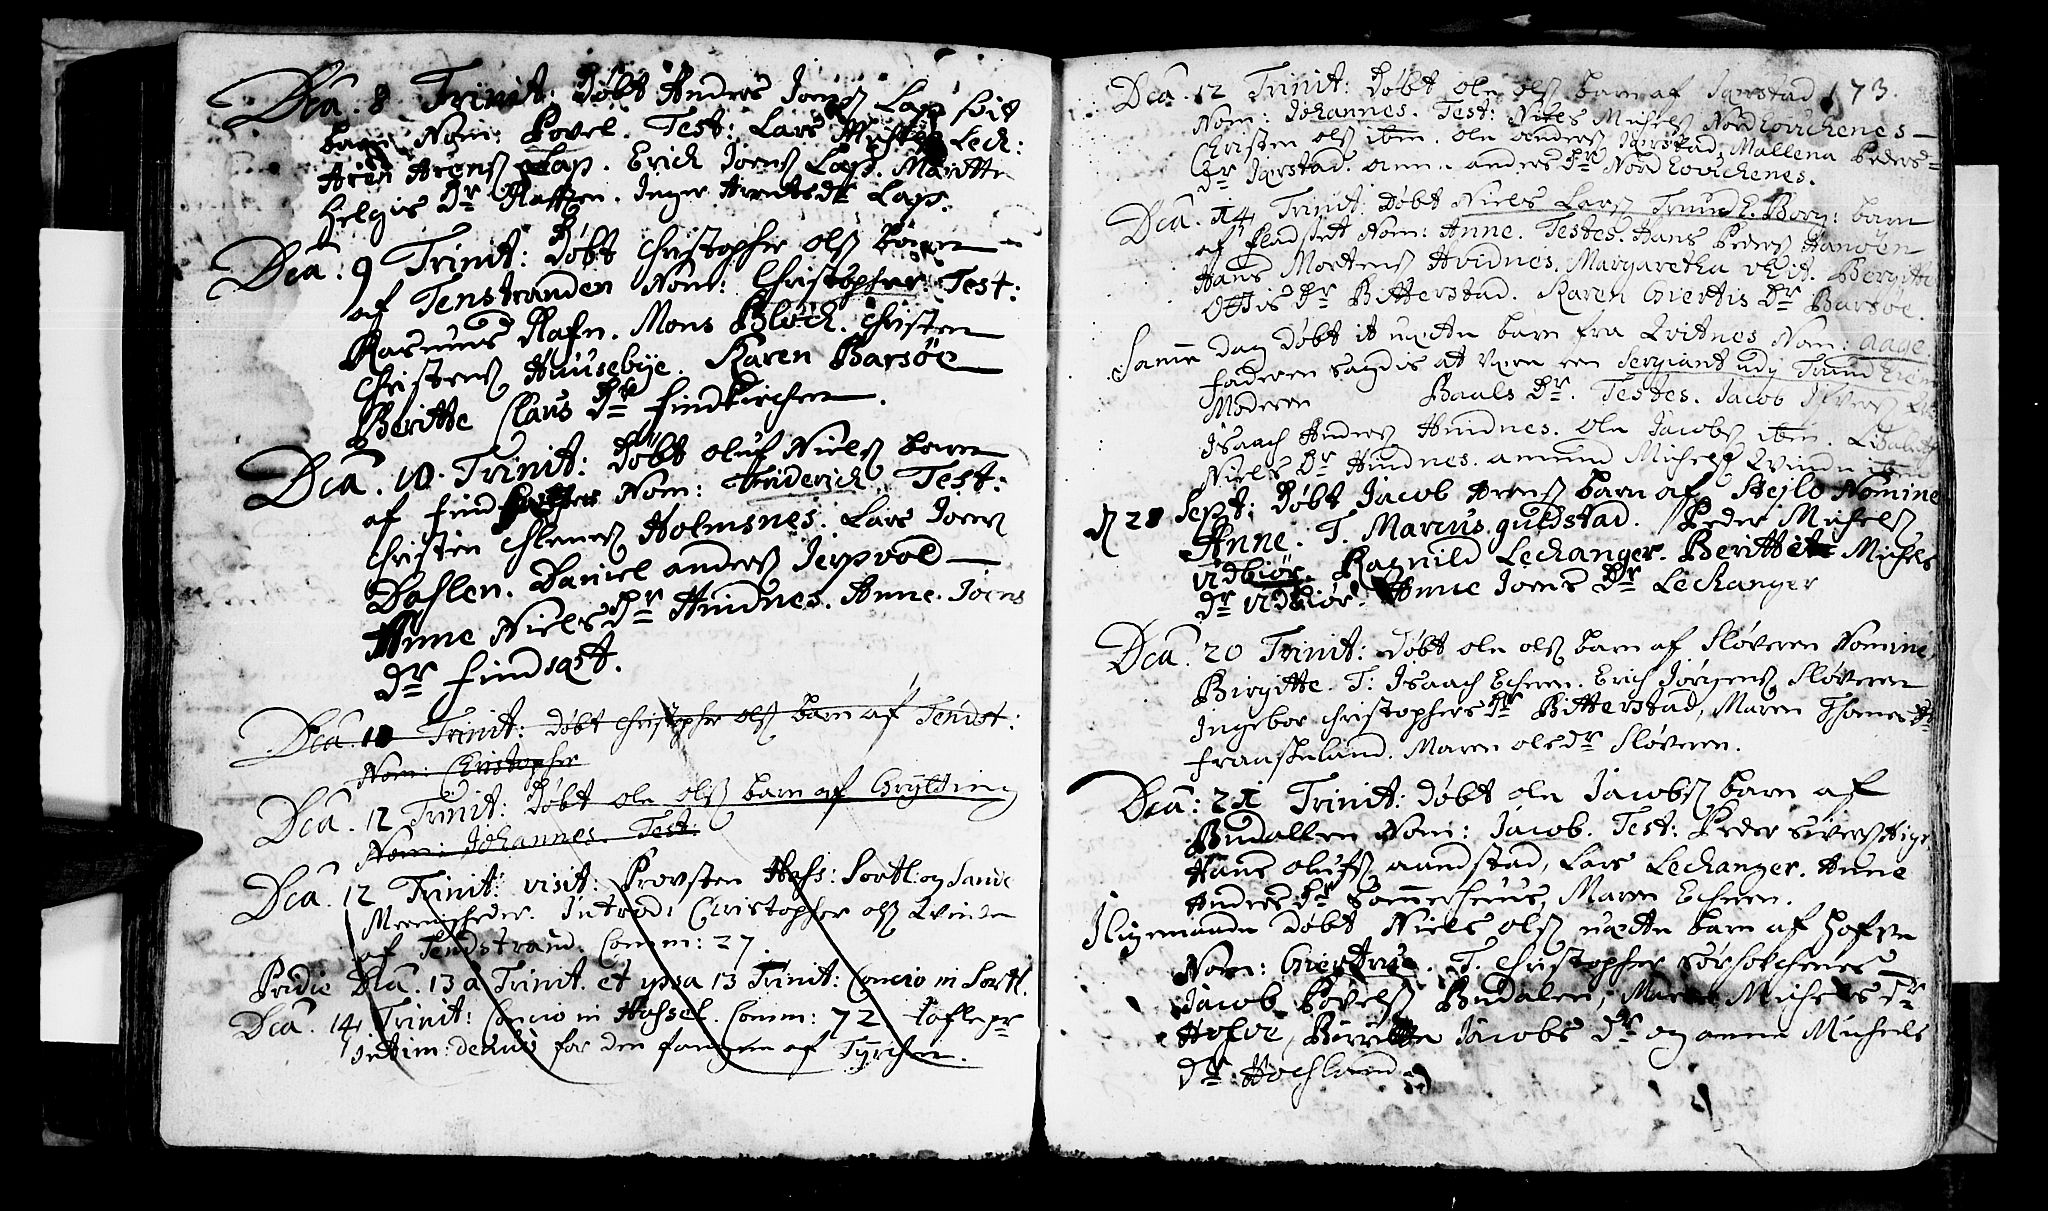 Dca: 8 Trinit: Døbt Anders Joens Lap hid
barn Nom: Povel. Test: Lars Lech:
Aren Arens Lap. Erich Joens Lap. Maritte
Helgis Dr Klaffen. Inger Arentsdr Lap.
Dca: 9 Trinit: Døbt Christopher Ols barn
af Tenstranden Nom: Christopher. Test:
Rasmus Rafn. Mons Bloch. Christen
Christens Huusebye. Karen Barsøe
Beritte Clavs Dr findkirchen.
Dca. 10. Trinit: Døbt oluf Niels barn
af find Nom: Friderich. Test:
Christen Clemes Holmsnes. Lars Joens
Dahlen. Daniel anders Jerpvold
Anne Niels Dr Hindnes. Anne Joens
Dr findsæt.
Dca. 10 Trinit: døbt Christopher ols barn af Tendst:
Nom: Christopher
Dca. 12 Trinit: Døbt ole ols barn af Grytting
Nom: Johannes. Test.
Dca. 12 Trinit: visit: Provsten Hass: Sortl: og Sande
Menigheder. Introd: Christopher ols Qvinde
af Tendstrand. Comm: 27.
Pridie Dca. 13 a Trinit. et ypsa 13 Trinit: Concio in Sortl.
Dca. 14 Trinit: Concio in Hassel. Comm: 72 taflepr
Intim: for den fangne af Tyrchen.
Dca. 12 Trinit: Døbt ole ols barn af Jarstad 173.
Nom: Johannes. Test: Niels Michels Nordhovichenes
Christen ols ibm. ole anders Jarstad Mallena Peders
Dr Jarstad. anne anders Dr Nordhovichenes.
Dca. 14 Trinit. Døbt Niels Lars Trundh. Borg: barn
af fladset Nom: Anne. Testes. Hans Peders Hanøen
Hans Mortens Hvidnes. Margaretha Bergitte
Ottis Dr Bitterstad. Karen Giertis Dr Barsøe.
Samme Dag døbt it uægte barn fra Qvitnes Nom: aage.
faderen sagdis at være een Sergiant udj Trundhiem
Moderen Paals Dr. Testes. Jacob Ifvers
Isaach Anders Hindnes. Ole Jacobs ibm.
Niels Dr Hindnes. amund Michels Qvinde ibm
28 Sept: Døbt Jacob Arens barn af Stejlo Nomine
Anne. T. Marcus guldstad. Peder Michels
Vidbiør. Ragnild Lechanger. Beritte Michels
Dr Vidbiør. Anne Joens Dr Lechanger
Dca. 20 Trinit: døbt ole ols barn af Sløveren Nomine
Birgitte. T: Isaach Echren. Erich Jørgens Sløveren
Ingebor Christophers Dr Bitterstad, Maren Thomes Dr
Maren ols dr Sløveren.
Dca: 21 Trinit: døbt ole Jacobs barn af
Budallen Nom: Jacob. Test: Peder Sivers
Hans olufs aandstad, Lars Lechanger. Anne
Anders Dr Sommerhuus, Maren Echren.
Iligemaade døbt Niels ols uægte barn af
Nom: Giertrue. T. Christopher
Jacob Povels Budalen, Maren Michels Dr
Holve, Berritte Jacobs Dr og anne Michels
Dr: Hochland